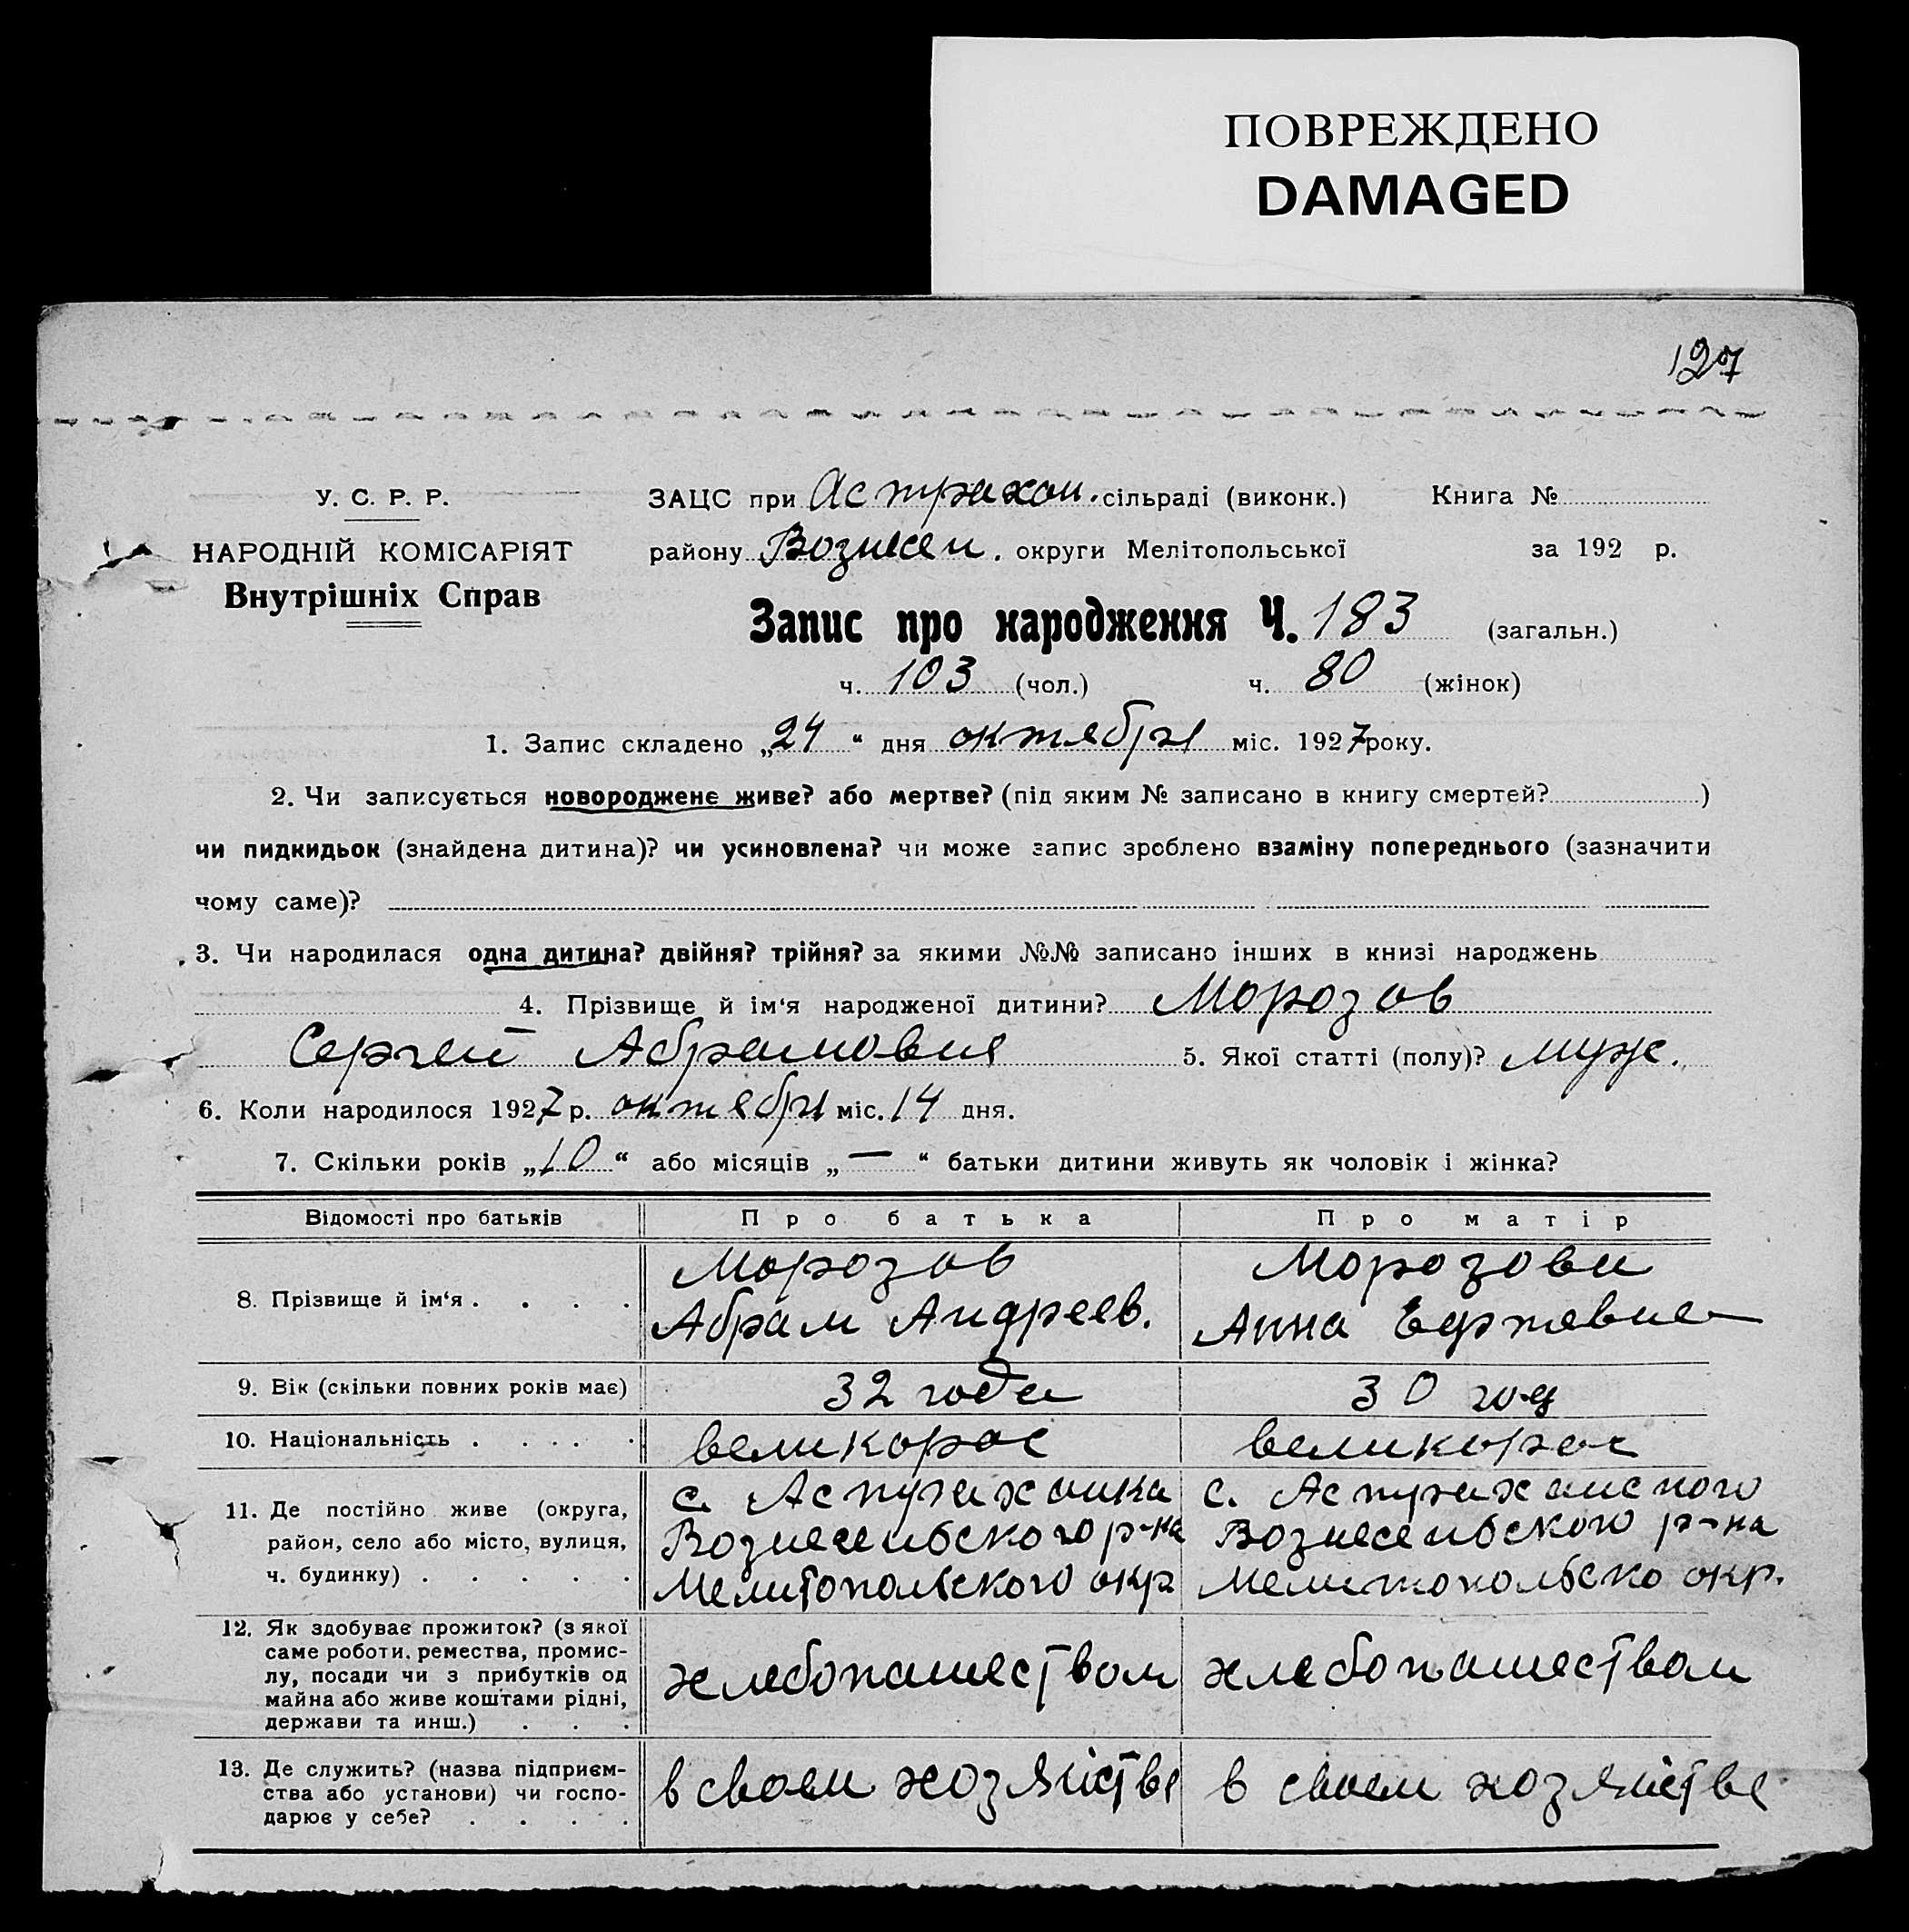 ПОВРЕЖДЕНО
DAMAGED
127
У. С. Р. Р.
НАРОДНІЙ КОМІСАРІЯТ
Внутрішніх Справ
ЗАЦС при Астрахан. сільраді (виконк.) Книга №
району Вознесен. округи Мелітопольської за 192 р.
Запис про народження Ч. 183 (загальн.)
ч. 103 (чол.) ч. 80 (жінок)
1. Запис складено „24“ дня октября міс. 1927 року.
2. Чи записується новороджене живе? або мертве? (під яким № записано в книгу смертей? )
чи пидкидьок (знайдена дитина)? чи усиновлена? чи може запис зроблено взаміну попереднього (зазначити
чому саме)?
3. Чи народилася одна дитина? двійня? трійня? за якими №№ записано інших в книзі народжень
4. Прізвище й ім‘я народженої дитини? Морозов
Сергей Абрамович 5. Якої статті (полу)? муж.
6. Коли народилося 1927 р. октября міс. 14 дня.
7. Скільки років „10“ або місяців „—“ батьки дитини живуть як чоловік і жінка?
Відомості про батьків Про батька Про матір
8. Прізвище й ім‘я . . . .
Морозов
Абрам Андреев.
Морозова
Анна
9. Вік (скільки повних років має) 32 года 30 год
10. Національність . . . . . великорос великорос
11. Де постійно живе (округа,
район, село або місто, вулиця,
ч. будинку) . . . . .
с. Астраханка
Вознесенбского р-на
Мелитопольского окр.
с. Астраханского
Вознесенбского р-на
Мелитопольско окр.
12. Як здобуває прожиток? (з якої
саме роботи, ремества, промис-
лу, посади чи з прибутків од
майна або живе коштами рідні,
держави та инш.) . . .
хлебопашеством хлебопашеством
13. Де служить? (назва підприєм-
ства або установи) чи госпо-
дарює у себе? . . . .
в своем хозяйстве в своем хозяйстве